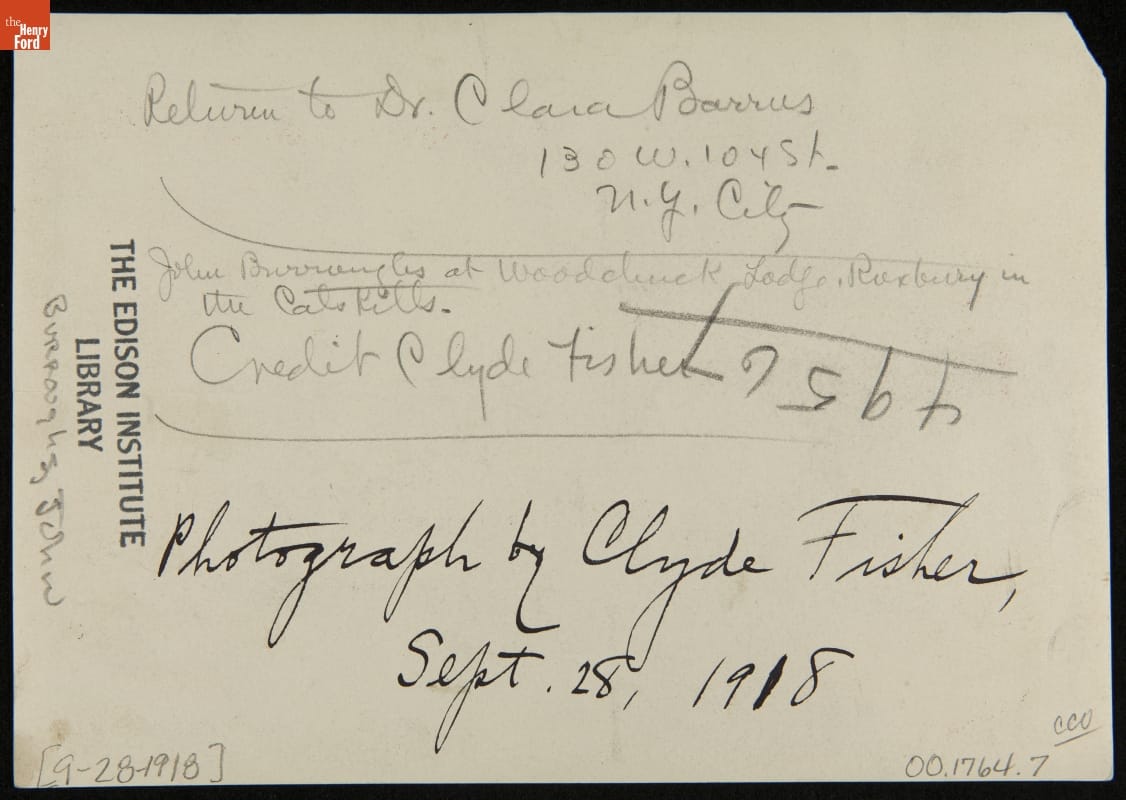 the
Henry
Ford
Return to Dr. Clara Barrus
130 W. 104 St.
N.Y. City
John Burroughs at Woodchuck Lodge, Roxbury in
the Catskills.
Credit Clyde Fisher
THE EDISON INSTITUTE
LIBRARY
Burroughs, John
Photograph by Clyde Fisher,
Sept. 28, 1918
[9-28-1918]
00.1764.7